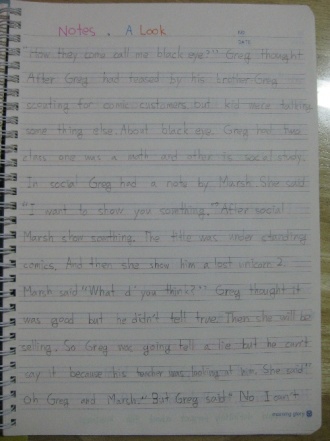 Notes. A Look
NO.
DATE
"How they come call me black eye?" Greg thought
After Greg had teased by his brother Greg
scouting for comic customers but kid were talking
some thing else. About black eye. Greg had two
class one was a math and other is social study.
In social Greg had a note by Marsh. She said
"I want to show you somthing." After social
Marsh show somthing. The title was under standing
comics. And then she show him a lost unicorn 2.
Marsh said "What d'you think?" Greg thought it
was good but he didn't tell true. Then she will be
selling. So Greg was going tell a lie but he can't
say it because his teacher was looking at him. She said "
Oh Greg and Marsh." But Greg said "No I can't
morning glory